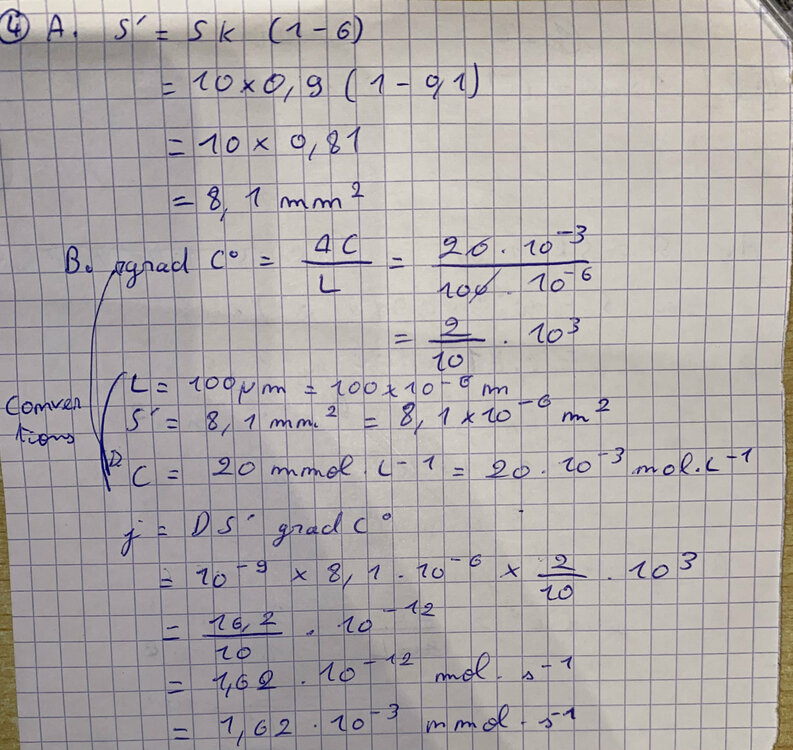 ④ A. S' = S K (1-6)
= 10 x 0,9 (1 - 0,1)
= 10 x 0,81
= 8,1 mm²
B. grad C° = ΔC / L = 20 . 10⁻³ / 100 . 10⁻⁶
= 2 / 10 . 10³
L = 100μm = 100 x 10⁻⁶ m
Conversions
S' = 8,1 mm² = 8,1 x 10⁻⁶ m²
C = 20 mmol . L-1 = 20 . 10⁻³ mol.L⁻¹
j = D S' grad C°
= 10⁻⁹ x 8,1 . 10⁻⁶ x 2 / 10 . 10³
= 16,2 / 10 . 10⁻¹²
= 1,62 . 10⁻¹² mol . s⁻¹
= 1,62 . 10⁻³ mmol . s⁻¹